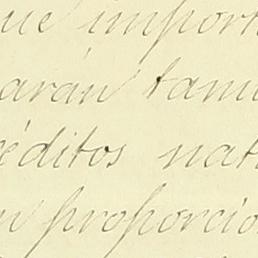 ue import
arán tam
éditos nat
n proporcio